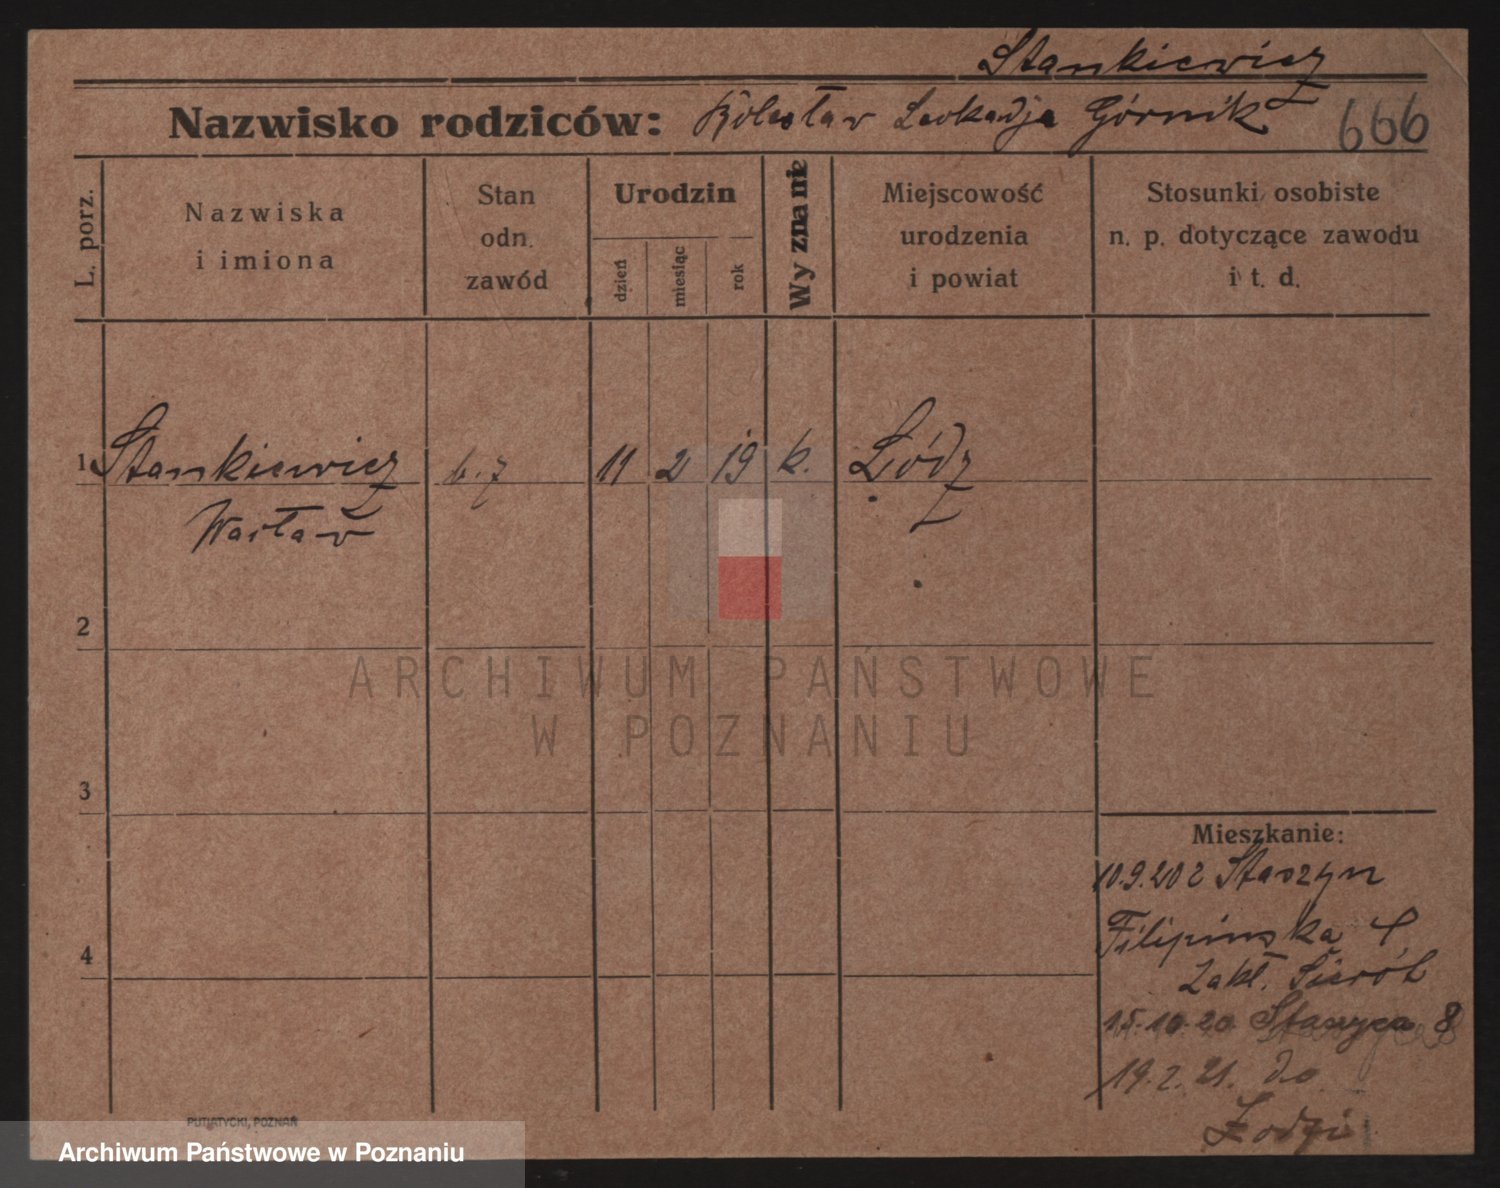 Stankiewicz
Nazwisko rodziców: Bolesław Leokadja Górnik 666
L. porz.
Nazwiska
i imiona
Stan
odn.
zawód
Urodzin
dzień
miesiąc
rok
Wyznanie
Miejscowość
urodzenia
i powiat
Stosunki osobiste
n. p. dotyczące zawodu
i t. d.
1 Stankiewicz b. z 11 2 19 k. Łódz
Wacław
2
ARCHIWUM PAŃSTWOWE
W POZNANIU
3
Mieszkanie:
10.9.20 z Staszyn
Filipińska
4
Zakł. Sierót
15.10.20 Staszyca 8
19.2.21. do
Łodzi
PUTIATYCKI, POZNAŃ
Archiwum Państwowe w Poznaniu